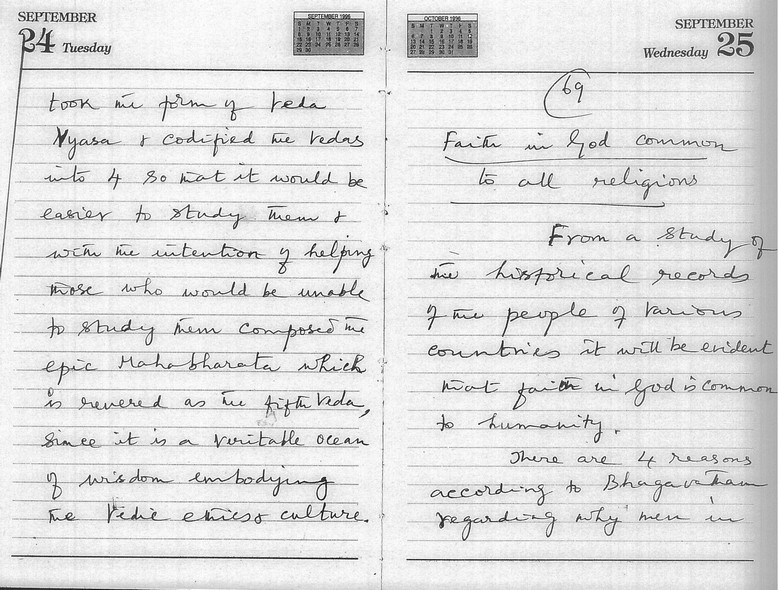 SEPTEMBER
24 Tuesday
SEPTEMBER 1996
took the form of Veda
Vyasa & codified the Vedas
into 4 so that it would be
easier to study them &
with the intention of helping
those who would be unable
to study them composed the
epic Mahabharata which
is revered as the fifth Veda,
since it is a veritable ocean
of wisdom embodying
the Vedic ethics & culture.
OCTOBER 1996
SEPTEMBER
Wednesday 25
69
Faith in God common
to all religions
From a study of
the historical records
of the people of various
countries it will be evident
that faith in God is common
to humanity.
There are 4 reasons
according to Bhagavatham
regarding why men in